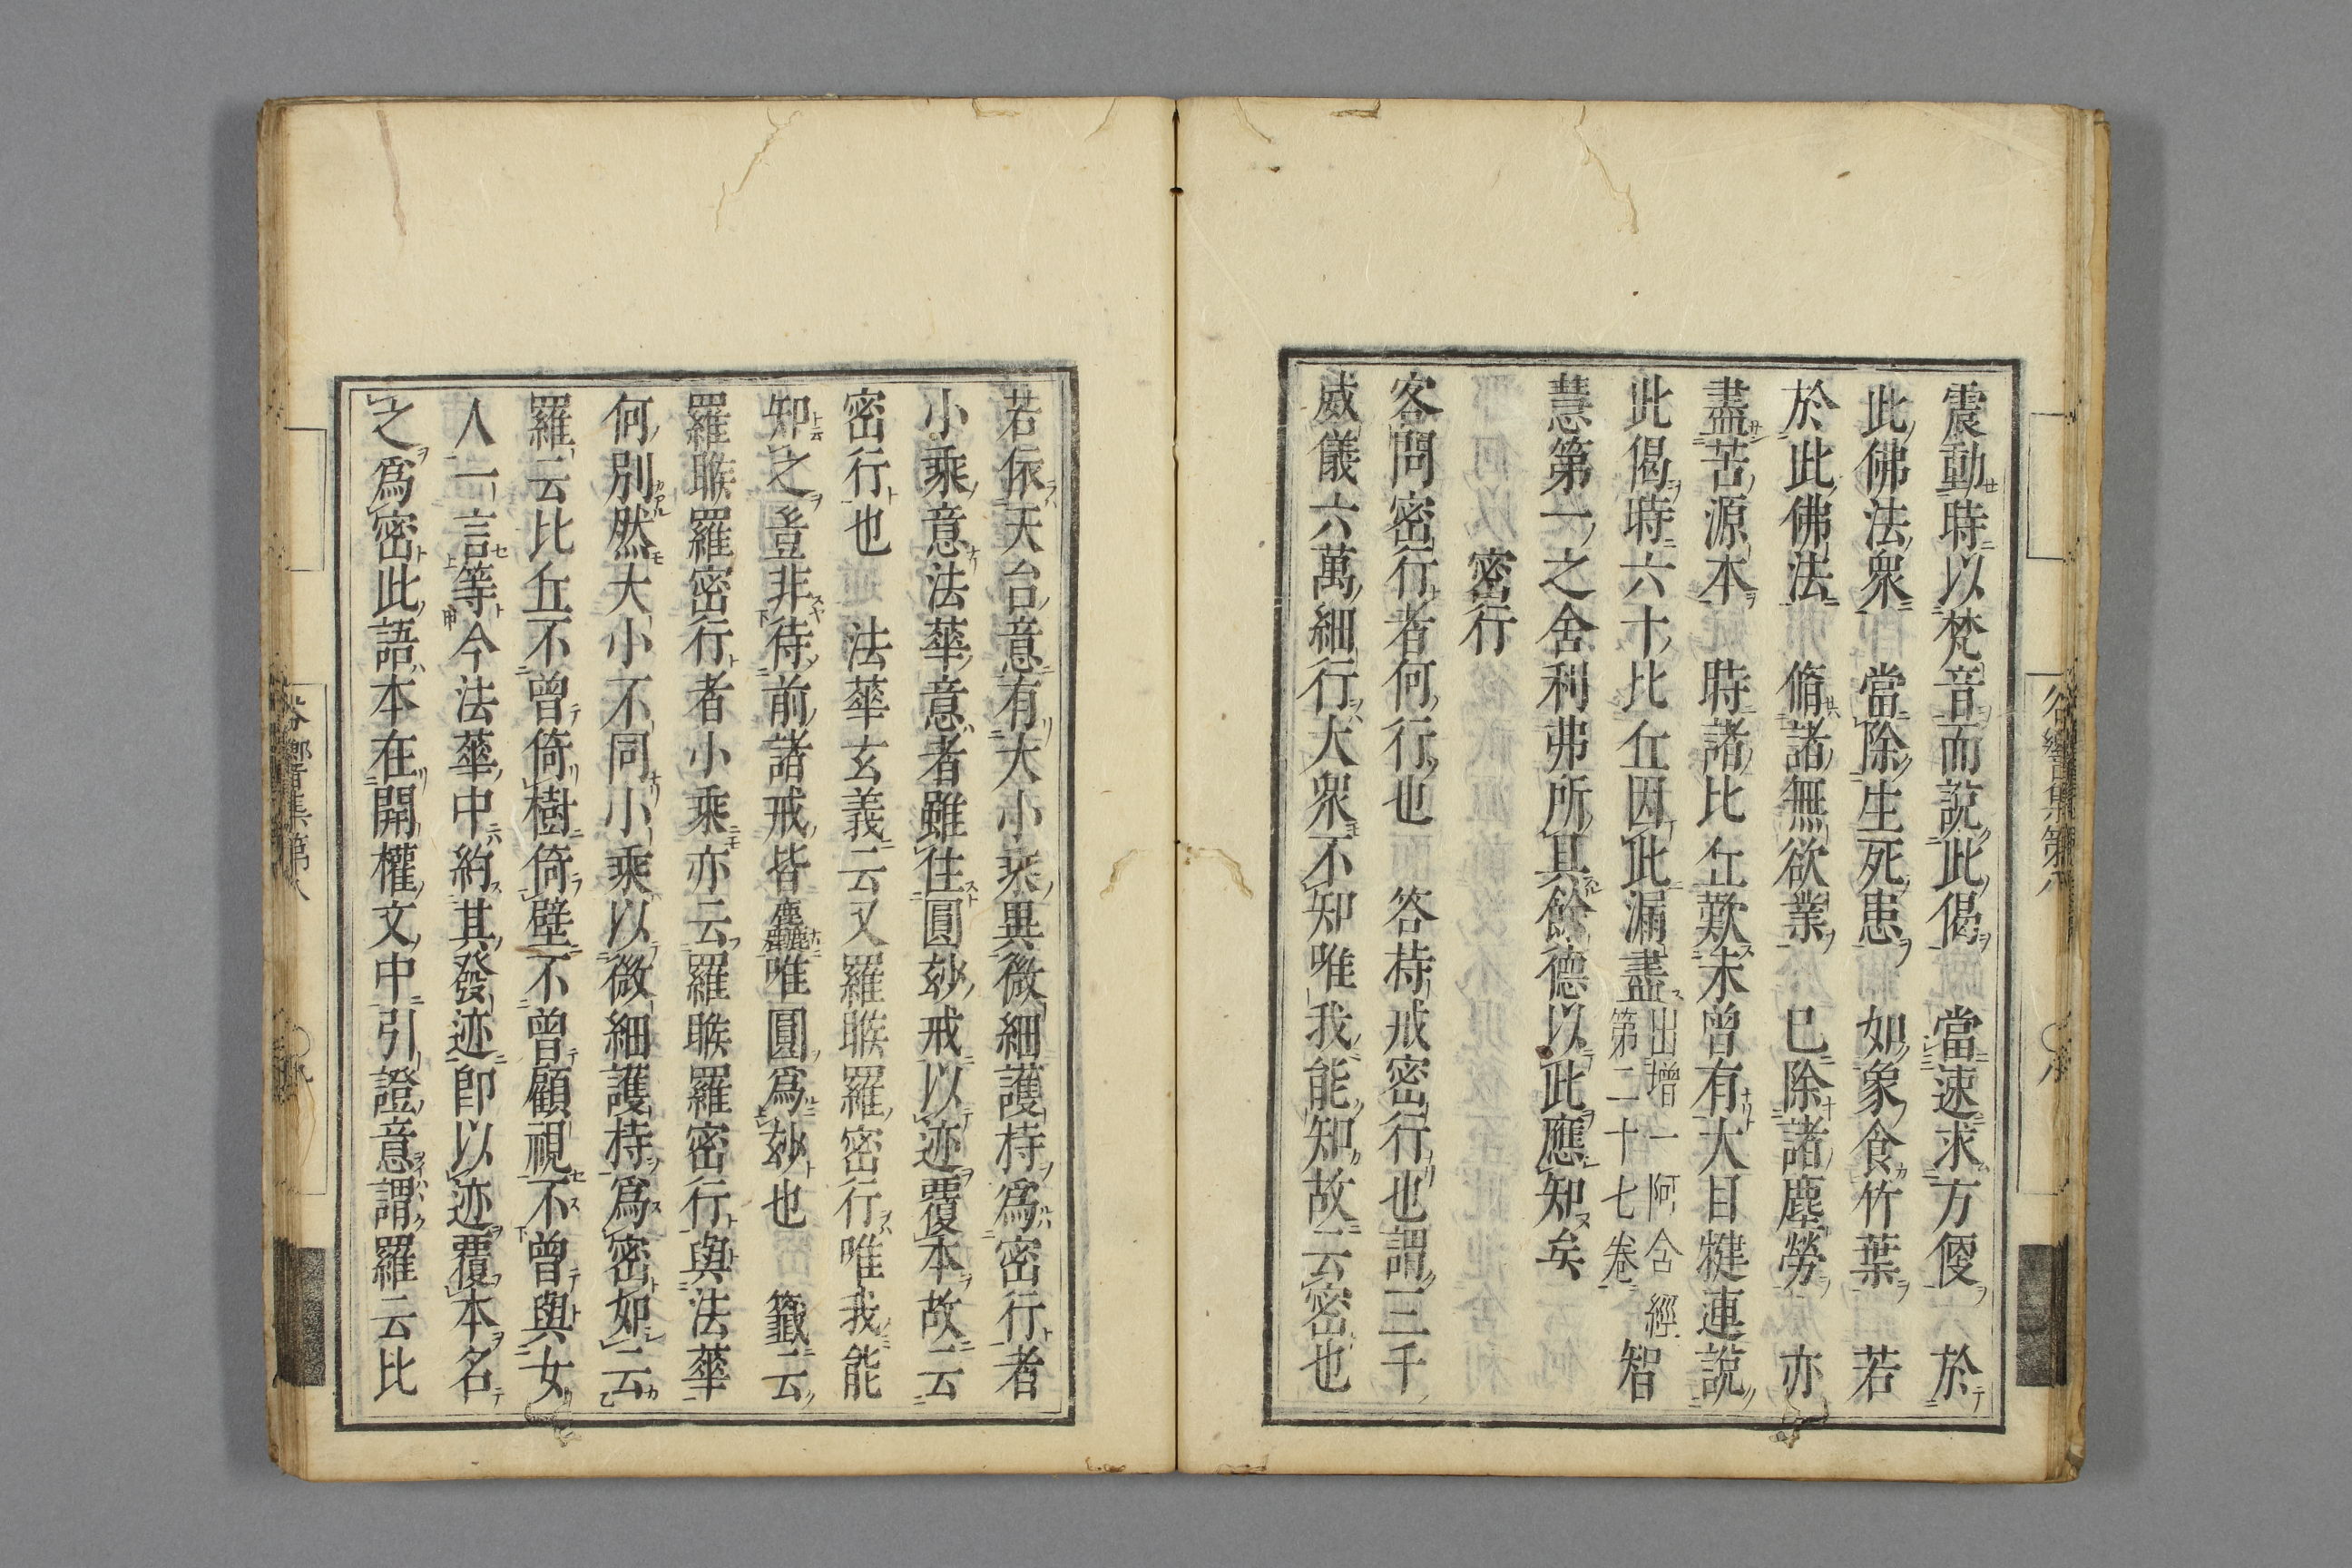 震動時以梵音而説此偈　當速求方便　於
此佛法衆　當除生死患　如象食竹葉　若
於此佛法　脩諸無欲業　已除諸塵勞　亦
盡苦源本　時諸比丘歎未曾有大目犍連説
此偈時六十比丘因此漏盡出增一阿含經第二十七卷智
慧第一之舍利弗所其餘德以此應知矣
密行
客問密行者何行也　答持戒密行也謂三千
威儀六萬細行大衆不知唯我能知故云密也
若依天台意有大小乘異微細護持爲密行者
小乘意法華意者雖住圓玅戒以迹覆本故云
密行也　法華玄義云又羅睺羅密行唯我能
知之豈非待前諸戒皆麤唯圓爲玅也　籤云
羅睺羅密行者小乘亦云羅睺羅密行與法華
何別然大小不同小乘以微細護持爲密如云
羅云比丘不曾倚樹倚壁不曾顧視不曾與女
人一言等今法華中約其發迹即以迹覆本名
之爲密此語本在開權文中引證意謂羅云比
谷響集第八